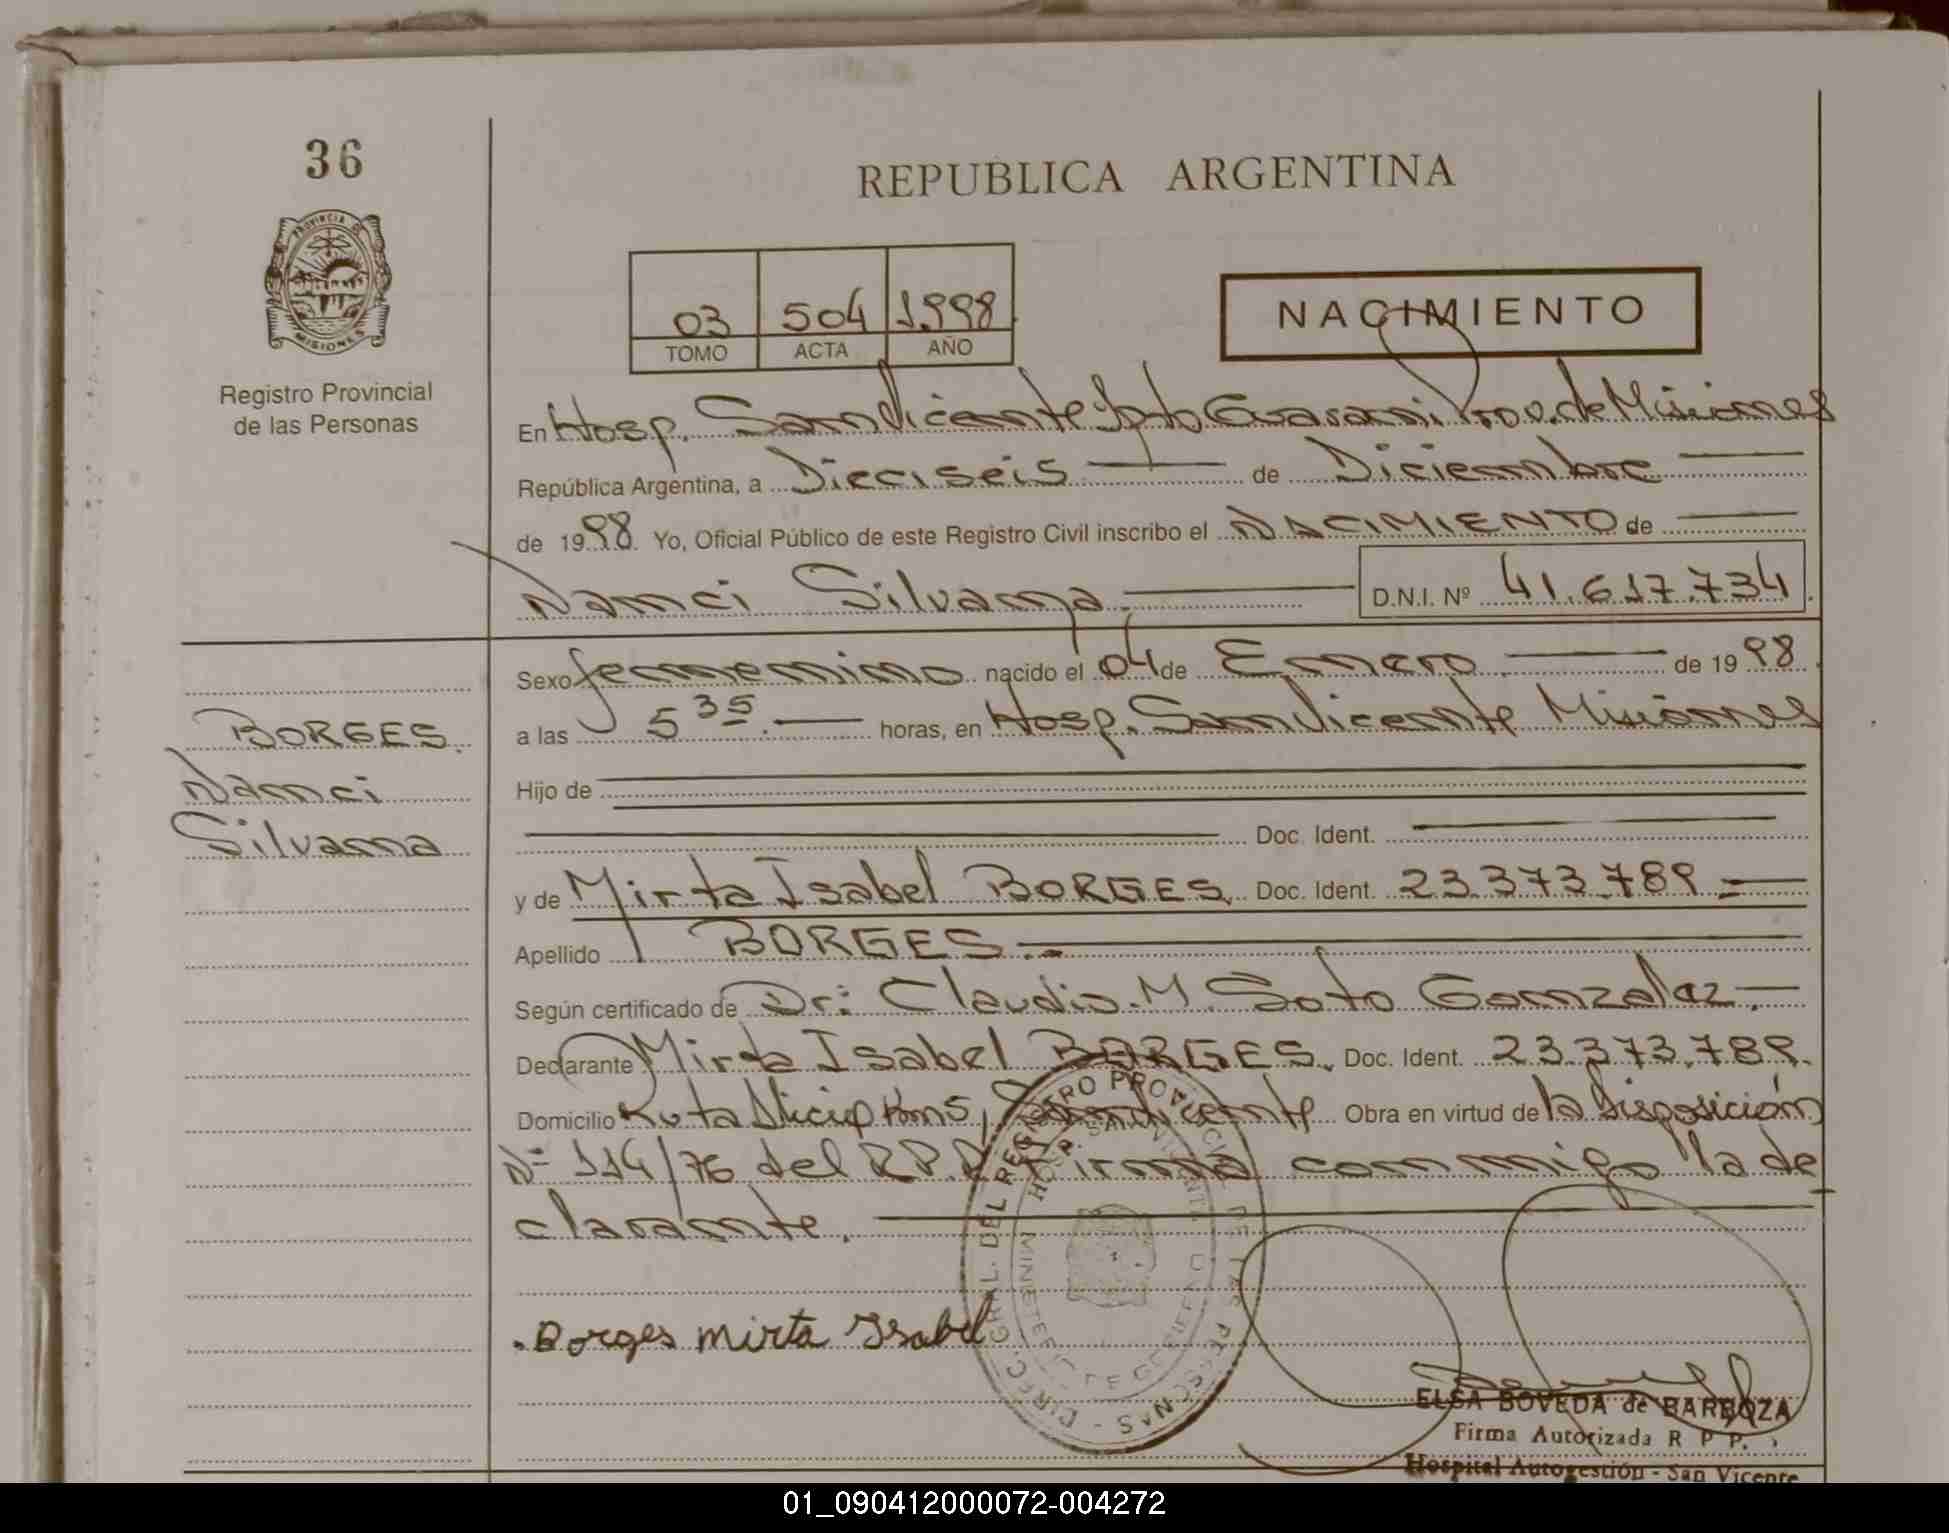 36
REPUBLICA ARGENTINA
PROVINCIA DE
MISIONES
Registro Provincial
de las Personas
03 504 1998
TOMO ACTA AÑO
NACIMIENTO
En Hosp. San Vicente Dpto Guarani Prov. de Misiones
República Argentina, a Dieciseis de Diciembre
de 1998. Yo, Oficial Público de este Registro Civil inscribo el NACIMIENTO de
Nanci Silvana. D.N.I. Nº 41.617.734
Sexo femenino nacido el 04 de Enero de 1998
a las 5 35 horas, en Hosp. San Vicente Misiones
BORGES
Nanci
Silvana
Hijo de
Doc. Ident.
y de Mirta Isabel BORGES. Doc. Ident. 23.373.789
Apellido BORGES.
Según certificado de Dr: Claudio. M. Soto Gonzalez.
Declarante Mirta Isabel BORGES. Doc. Ident. 23.373.789.
Domicilio Ruta San Vicente Obra en virtud de la Disposición
Nº 114/76 del R.P.P. Firma conmigo la de
clarante.
Borges mirta Isabel
DIREC. GRAL. DEL REGISTRO PROVINCIAL DE LAS PERSONAS
HOSP. SAN VICENTE
MINISTERIO DE GOBIERNO
ELSA BOVEDA de BARBOZA
Firma Autorizada R P P.
Hospital Autogestión - San Vicente
01_090412000072-004272